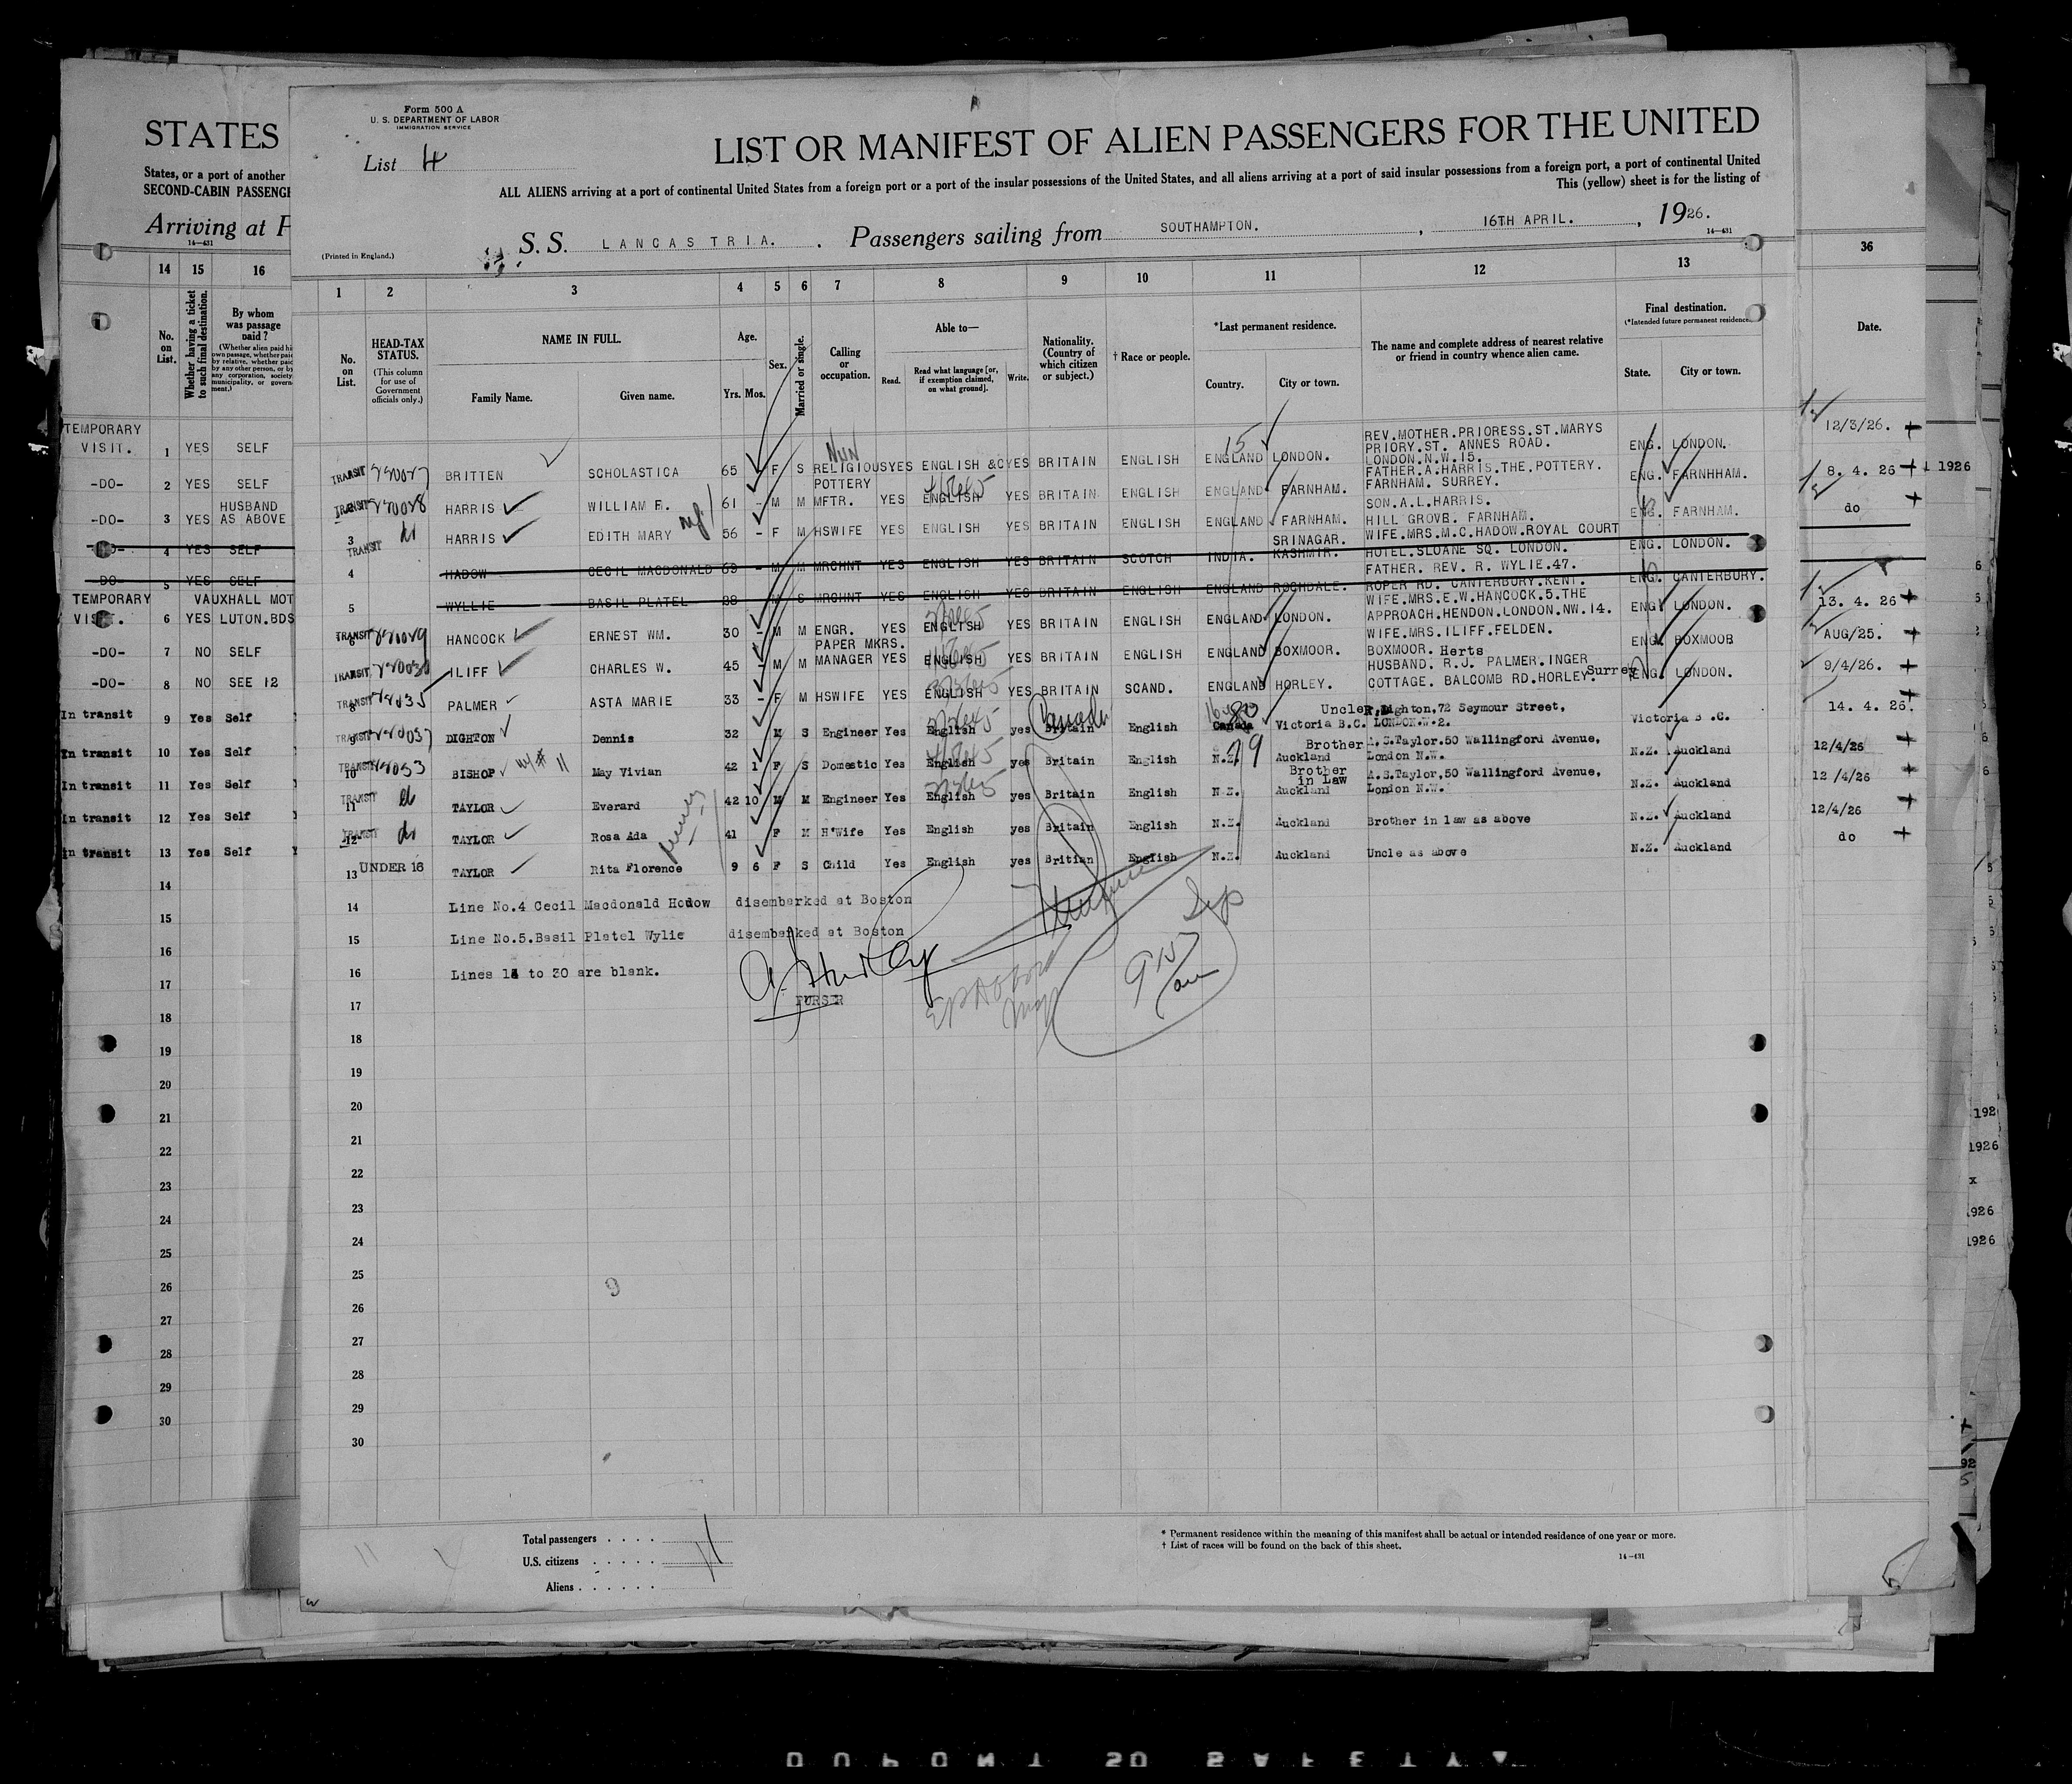 Form 500 A
U. S. DEPARTMENT OF LABOR
IMMIGRATION SERVICE
List 4
LIST OR MANIFEST OF ALIEN PASSENGERS FOR THE UNITED
ALL ALIENS arriving at a port of continental United States from a foreign port or a port of the insular possessions of the United States, and all aliens arriving at a port of said insular possessions from a foreign port, a port of continental United
This (yellow) sheet is for the listing of
S. S. LANCASTRIA. Passengers sailing from SOUTHAMPTON. , 16TH APRIL. , 1926.
14—431
(Printed in England.)
STATES
States, or a port of another
SECOND-CABIN PASSENGE
Arriving at P
14—431
14 15 16
No. on List.
Whether having a ticket to such final destination.
By whom was passage paid?
(Whether alien paid hi
own passage, whether paid
by relative, whether paid
by any other person, or by
any corporation, society,
municipality, or govern-
ment.)
1 2 3 4 5 6 7 8 9 10 11 12 13 36
No. on List.
HEAD-TAX STATUS.
(This column for use of Government officials only.)
NAME IN FULL.
Family Name. Given name.
Age.
Yrs. Mos.
Sex.
Married or single.
Calling or occupation.
Able to—
Read. Read what language [or, if exemption claimed, on what ground]. Write.
Nationality. (Country of which citizen or subject.)
† Race or people.
*Last permanent residence.
Country. City or town.
The name and complete address of nearest relative or friend in country whence alien came.
Final destination.
(*Intended future permanent residence.)
State. City or town.
Date.
TEMPORARY VISIT. 1 YES SELF
-DO- 2 YES SELF
-DO- 3 YES HUSBAND AS ABOVE
-DO- 4 YES SELF
-DO- 5 YES SELF
TEMPORARY VISIT. 6 YES VAUXHALL MOT LUTON.BDS
-DO- 7 NO SELF
-DO- 8 NO SEE 12
In transit 9 Yes Self
In transit 10 Yes Self
In transit 11 Yes Self
In transit 12 Yes Self
In transit 13 Yes Self
TRANSIT BRITTEN SCHOLASTICA 65 - F S Nun RELIGIOUS YES ENGLISH &C YES BRITAIN ENGLISH ENGLAND LONDON. REV.MOTHER.PRIORESS.ST.MARYS PRIORY.ST. ANNES ROAD. LONDON.N.W.15. ENG. LONDON. 12/3/26.
TRANSIT HARRIS WILLIAM F. 61 - M M POTTERY MFTR. YES ENGLISH YES BRITAIN ENGLISH ENGLAND FARNHAM. FATHER.A.HARRIS.THE.POTTERY. FARNHAM. SURREY. ENG. FARNHHAM. 8. 4. 26 1926
3 HARRIS EDITH MARY 56 - F M HSWIFE YES ENGLISH YES BRITAIN ENGLISH ENGLAND FARNHAM. SON.A.L.HARRIS. HILL GROVE. FARNHAM. ENG. FARNHAM. do
TRANSIT 4 HADOW CECIL MACDONALD 69 - M M MRCHNT YES ENGLISH YES BRITAIN SCOTCH INDIA. SRINAGAR. KASHMIR. WIFE.MRS.M.C.HADOW.ROYAL COURT HOTEL.SLOANE SQ. LONDON. ENG. LONDON.
5 WYLLIE BASIL PLATEL 28 M S MRCHNT YES ENGLISH YES BRITAIN ENGLISH ENGLAND ROCHDALE. FATHER. REV. R. WYLIE.47. ROPER RD. CANTERBURY.KENT. ENG. CANTERBURY.
TRANSIT 6 HANCOCK ERNEST WM. 30 - M M ENGR. YES ENGLISH YES BRITAIN ENGLISH ENGLAND LONDON. WIFE.MRS.E.W.HANCOCK.5.THE APPROACH.HENDON.LONDON.NW.14. ENG LONDON. 13. 4. 26
TRANSIT ILIFF CHARLES W. 45 - M M PAPER MKRS. MANAGER YES ENGLISH YES BRITAIN ENGLISH ENGLAND BOXMOOR. WIFE.MRS.ILIFF.FELDEN. BOXMOOR. Herts ENG. BOXMOOR AUG/25.
TRANSIT 8 PALMER ASTA MARIE 33 - F M HSWIFE YES ENGLISH YES BRITAIN SCAND. ENGLAND HORLEY. HUSBAND. R.J. PALMER.INGER COTTAGE. BALCOMB RD.HORLEY. Surrey ENG. LONDON. 9/4/26.
TRANSIT 9 DIGHTON Dennis 32 M S Engineer Yes English yes Britain Canada English Canada Victoria B.C. Uncle R.Dighton,72 Seymour Street, LONDON.W.2. Victoria B .C. 14. 4. 26.
TRANSIT 10 BISHOP May Vivian 42 1 F S Domestic Yes English yes Britain English N.Z. Auckland Brother A.S.Taylor.50 Wallingford Avenue, London N.W. N.Z. Auckland 12/4/26
TRANSIT 11 TAYLOR Everard 42 10 M M Engineer Yes English yes Britain English N.Z. Auckland Brother in Law A.S.Taylor,50 Wallingford Avenue, London N.W. N.Z. Auckland 12 /4/26
TRANSIT 12 TAYLOR Rosa Ada 41 F M H'Wife Yes English yes Britain English N.Z. Auckland Brother in law as above N.Z. Auckland 12/4/26
13 UNDER 16 TAYLOR Rita Florence 9 6 F S Child Yes English yes Britian English N.Z. Auckland Uncle as above N.Z. Auckland do
14 Line No.4 Cecil Macdonald Hodow disembarked at Boston
15 Line No.5.Basil Platel Wylie disembarked at Boston
16 Lines 14 to 30 are blank.
PURSER
17
18
19
20
21
22
23
24
25
26
27
28
29
30
Total passengers . . . .
U.S. citizens . . . . . 11
Aliens . . . . . .
* Permanent residence within the meaning of this manifest shall be actual or intended residence of one year or more.
† List of races will be found on the back of this sheet.
14—431